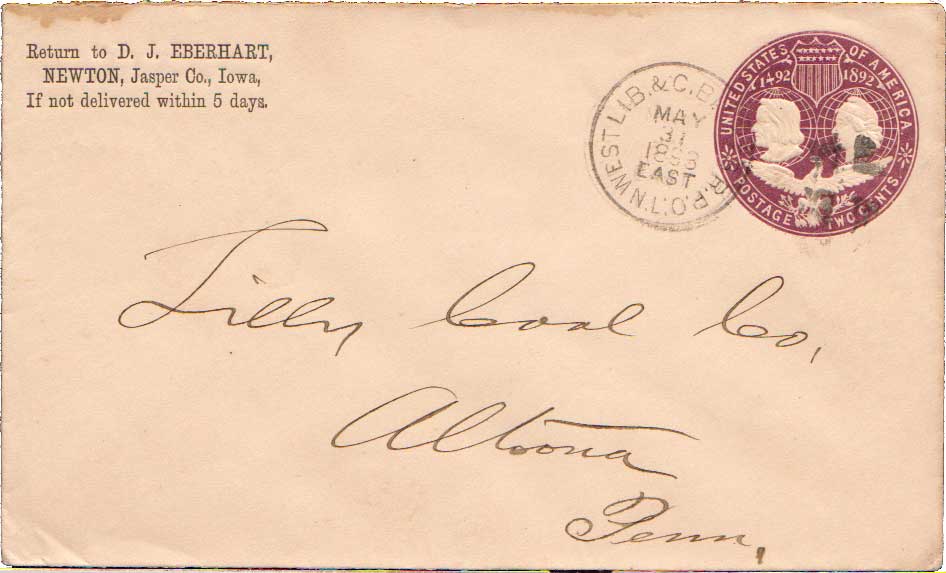 Return to D. J. EBERHART,
NEWTON, Jasper Co., Iowa,
If not delivered within 5 days.
WEST LIB. & C.B. R.P.O.
MAY
31
1893
EAST
N.L.
UNITED STATES OF AMERICA
1492 1892
POSTAGE TWO CENTS
Lilly Coal Co,
Altoona
Penn,